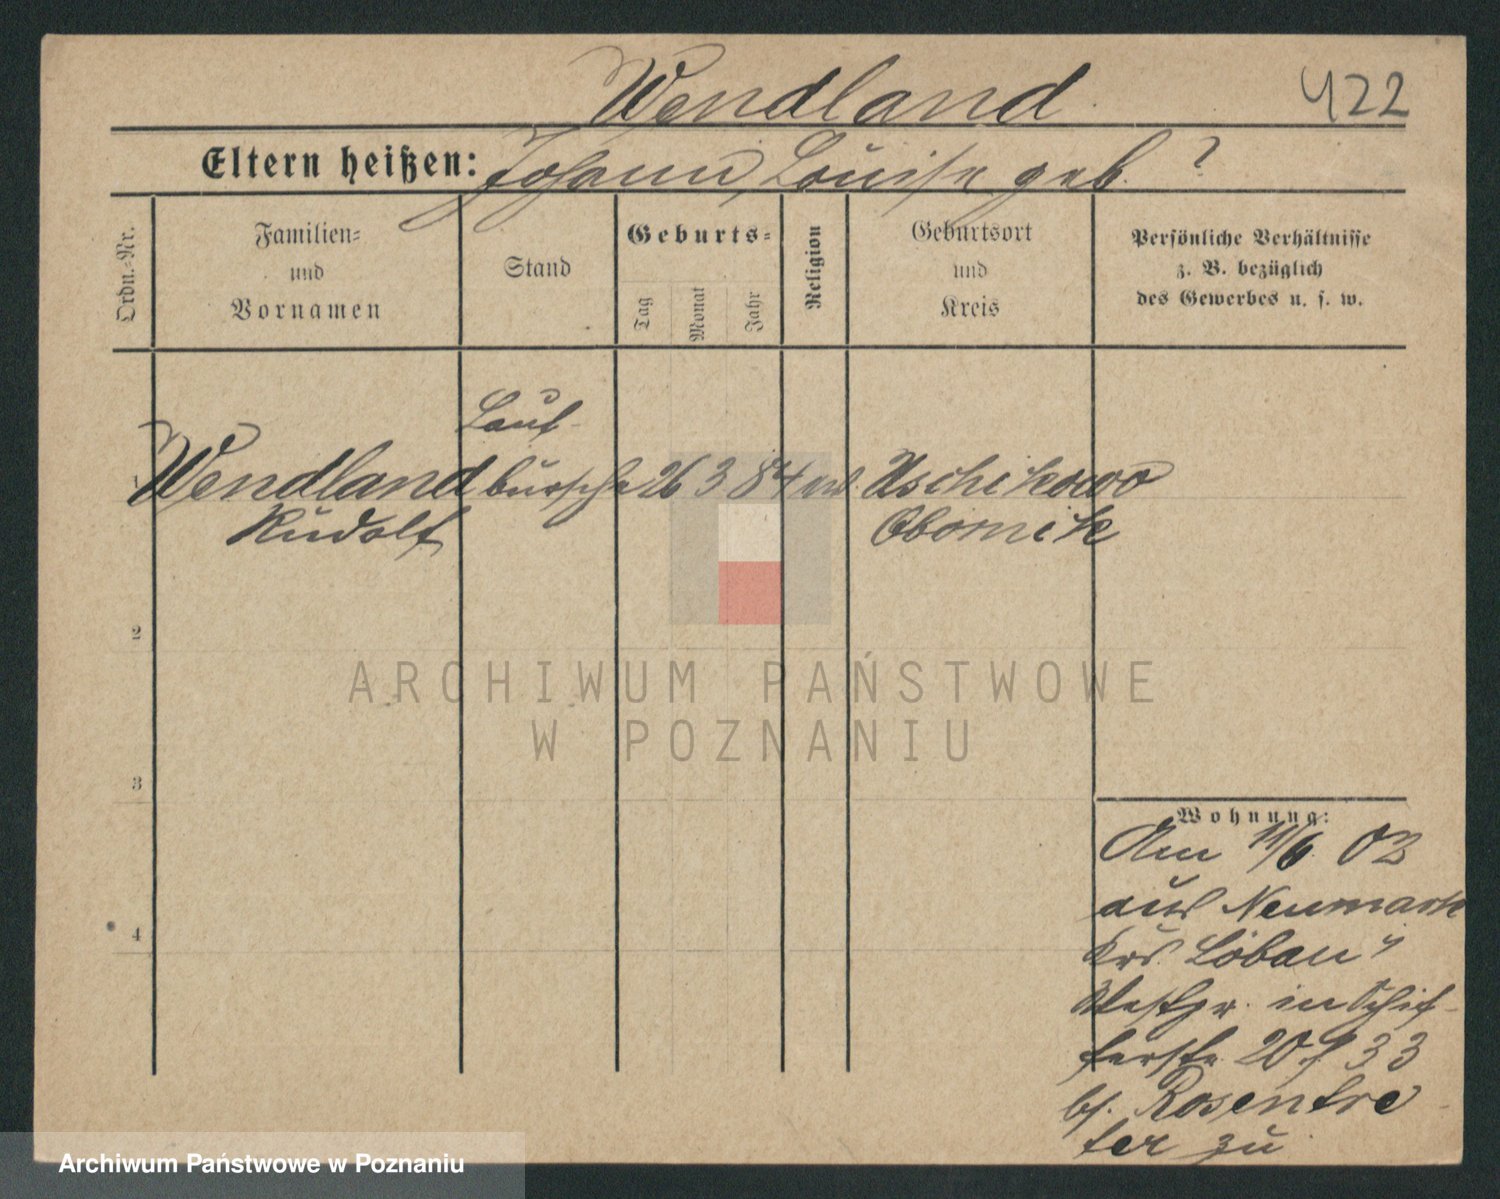 Wendland.
422
Eltern heißen: Johann, Louise geb. ?
Ordn.-Nr.
Familien-
und
Vornamen
Stand
Geburts-
Tag
Monat
Jahr
Religion
Geburtsort
und
Kreis
Persönliche Verhältnisse
z. B. bezüglich
des Gewerbes u. s. w.
Lauf-
1 Wendland bursche 26 3 84 Uschikowo
Rudolf Obornik
2
ARCHIWUM PAŃSTWOWE
W POZNANIU
3
4
Wohnung:
Am 11/6. 02
aus Neumark
Krs. Löbau
Westpr. in Schif-
ferstr. 20 33
bei Rosentre
ter zu
Archiwum Państwowe w Poznaniu